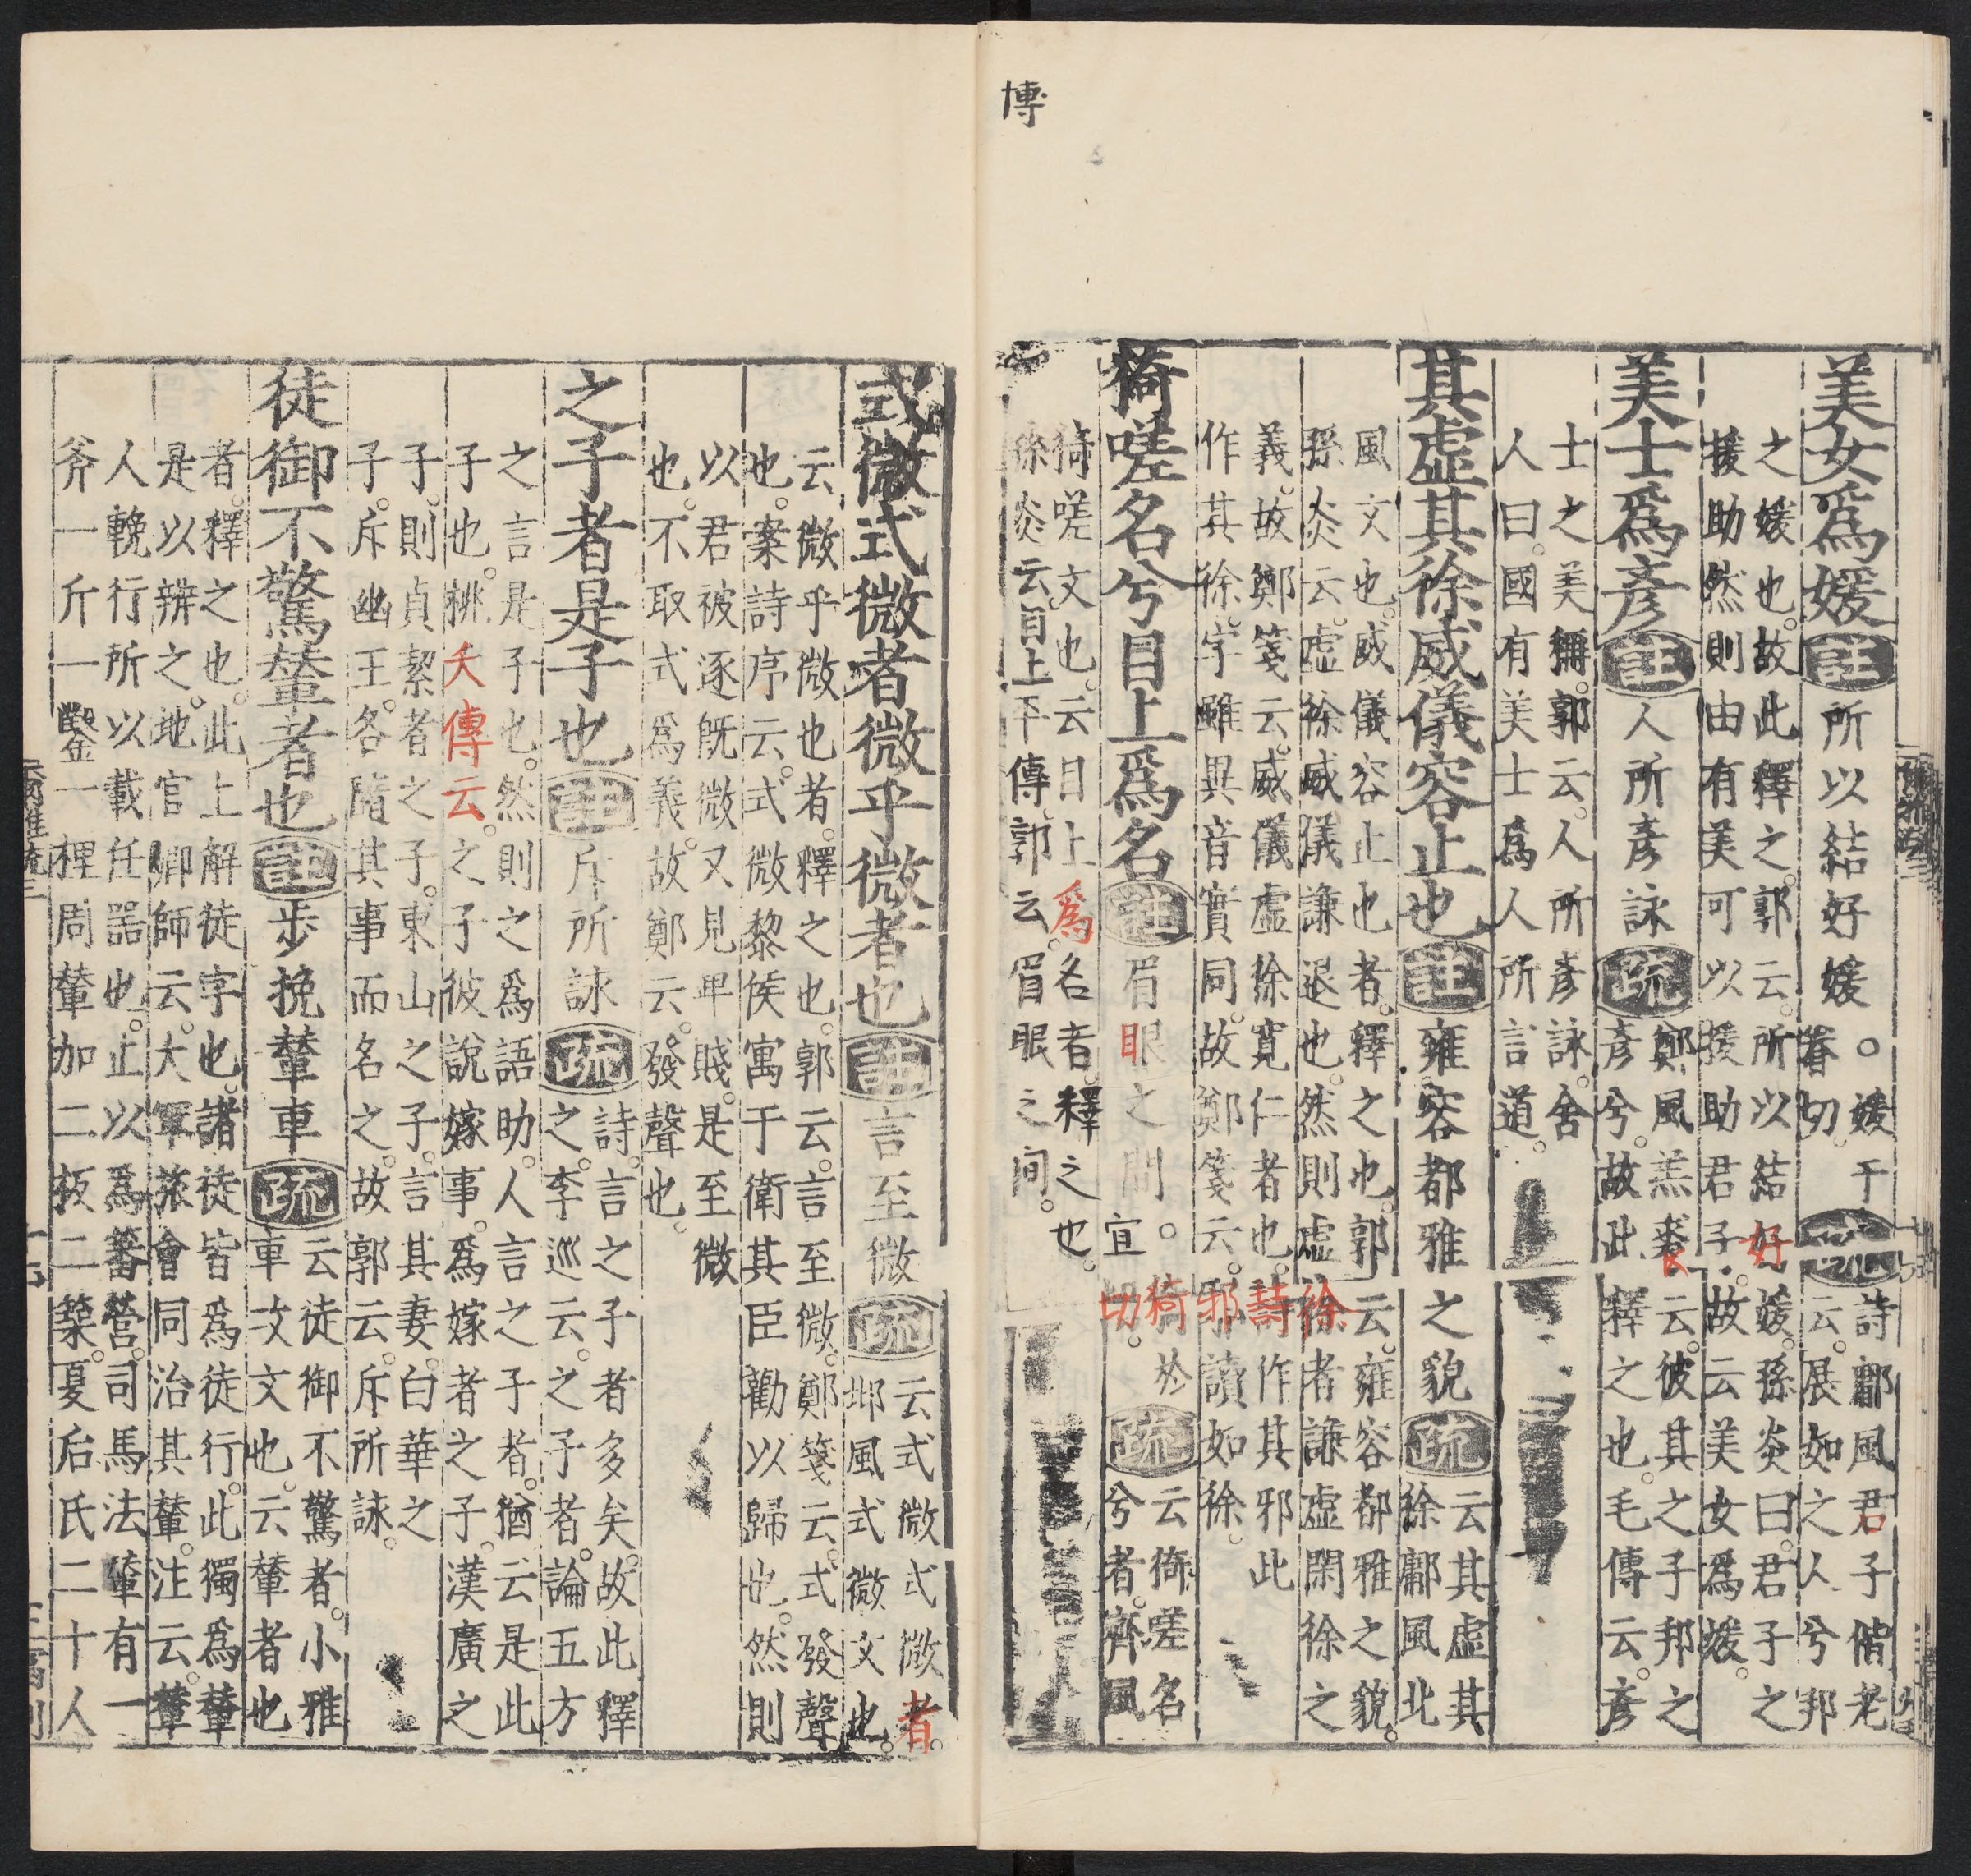 博
美女爲媛註所以結好媛○媛于眷切疏詩鄘風君子偕老
云展如之人兮邦
之媛也故此釋之郭云所以結好媛孫炎曰君子之
援助然則由有美可以援助君子故云美女爲媛
美士爲彥註人所彥詠疏鄭風羔裘云彼其之子邦之
彥兮故此釋之也毛傳云彥
士之美稱郭云人所彥詠舍
人曰國有美士爲人所言道
其虛其徐威儀容止也註雍容都雅之貌疏云其虛其
徐鄘風北
風文也威儀容止也者釋之也郭云雍容都雅之貌
孫炎云虛徐威儀謙退也然則虛徐者謙虛閑徐之
義故鄭箋云威儀虛徐寬仁者也詩作其邪此
作其徐字雖異音實同故鄭箋云邪讀如徐
猗嗟名兮目上爲名註眉眼之間○猗於宜切疏云猗嗟名
兮者齊風
猗嗟文也云目上爲名者釋之也
孫炎云目上平傳郭云眉眼之間
式微式微者微乎微者也註言至微疏云式微式微者
邶風式微文也
云微乎微也者釋之也郭云言至微鄭箋云式發聲
也案詩序云式微黎侯寓于衛其臣勸以歸也然則
以君被逐旣微又見卑賤是至微
也不取式爲義故鄭云發聲也
之子者是子也註斥所詠疏詩言之子者多矣故此釋
之李巡云之子者論五方
之言是子也然則之爲語助人言之子者猶云是此
子也桃夭傳云之子彼說嫁事爲嫁者之子漢廣之
子則貞絜者之子東山之子言其妻白華之
子斥幽王各隨其事而名之故郭云斥所詠
徒御不驚輦者也註步挽輦車疏云徒御不驚者小雅
車攻文也云輦者也
者釋之也此上解徒字也諸徒皆爲徒行此獨爲輦
是以辨之地官鄉師云大軍旅會同治其輦注云輦
人輓行所以載任器也止以爲蕃營司馬法輦有一
斧一斤一鑿一梩周輦加二板二築夏后氏二十人